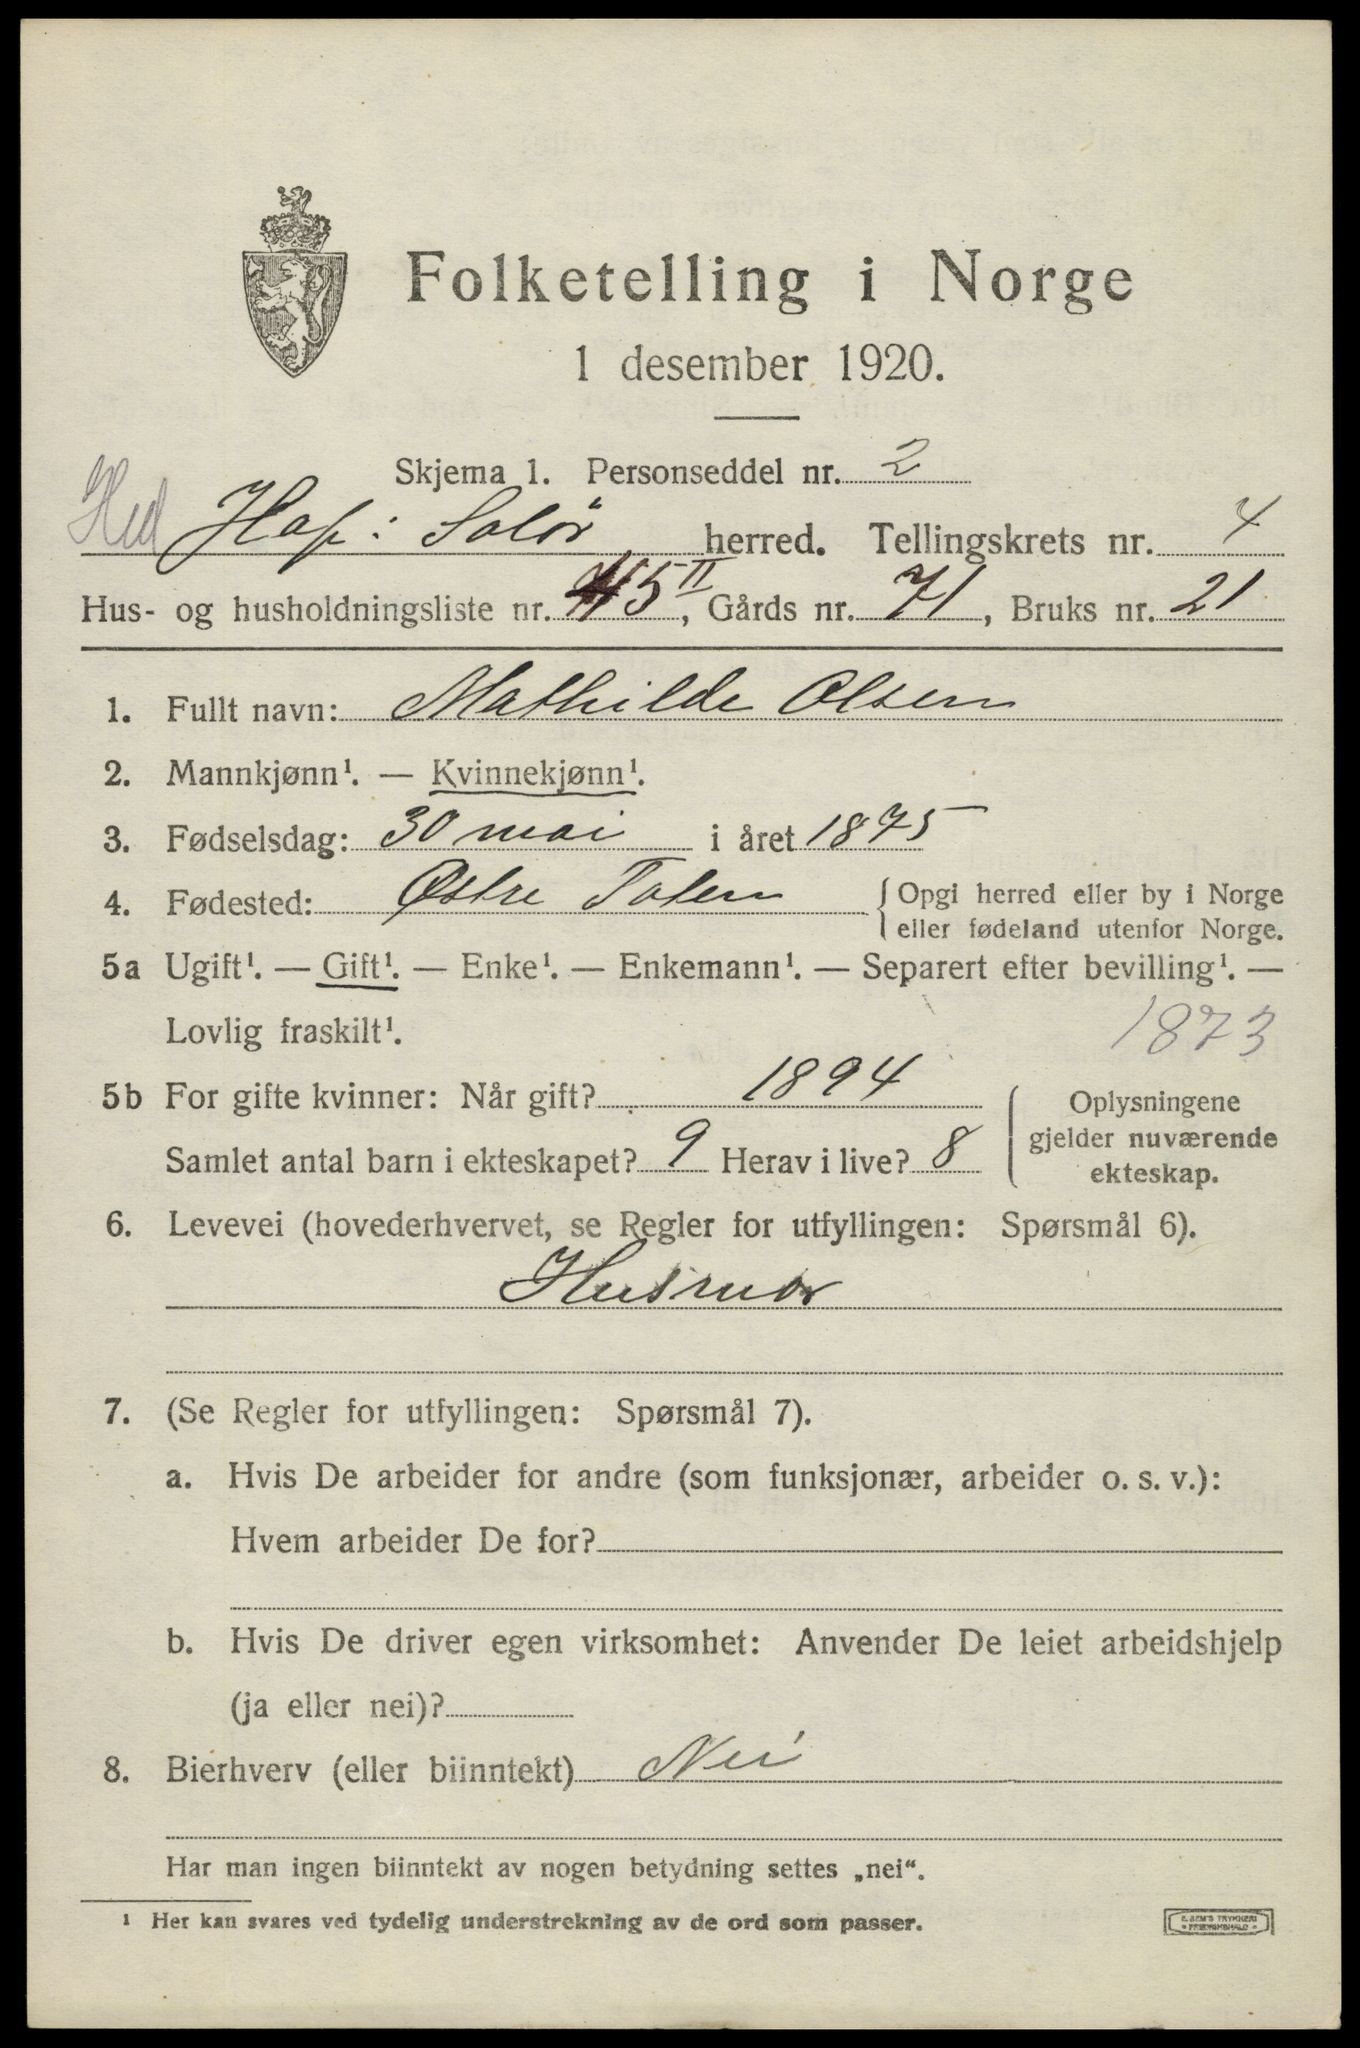 Folketelling i Norge
1 desember 1920.
Skjema 1. Personseddel nr. 2
Hed Hof: Solør herred. Tellingskrets nr. 4
Hus- og husholdningsliste nr. 45 II, Gårds nr. 71, Bruks nr. 21
1. Fullt navn: Mathilde Olsen
2. Mannkjønn¹. — Kvinnekjønn¹.
3. Fødselsdag: 30 mai i året 1875
4. Fødested: Østre Toten { Opgi herred eller by i Norge
eller fødeland utenfor Norge.
5a Ugift¹. — Gift¹. — Enke¹. — Enkemann¹. — Separert efter bevilling¹. —
Lovlig fraskilt¹. 1873
5b For gifte kvinner: Når gift? 1894
Samlet antal barn i ekteskapet? 9 Herav i live? 8
Oplysningene
gjelder nuværende
ekteskap.
6. Levevei (hovederhvervet, se Regler for utfyllingen: Spørsmål 6).
Husmor
7. (Se Regler for utfyllingen: Spørsmål 7).
a. Hvis De arbeider for andre (som funksjonær, arbeider o. s. v.):
Hvem arbeider De for?
b. Hvis De driver egen virksomhet: Anvender De leiet arbeidshjelp
(ja eller nei)?
8. Bierhverv (eller biinntekt) Nei
Har man ingen biinntekt av nogen betydning settes „nei“.
¹ Her kan svares ved tydelig understrekning av de ord som passer.
E. SEM'S TRYKKERI
FREDRIKSHALD